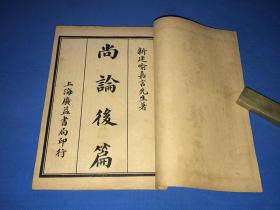 新建喻嘉言先生著
尚論後篇
上海廣益書局印行